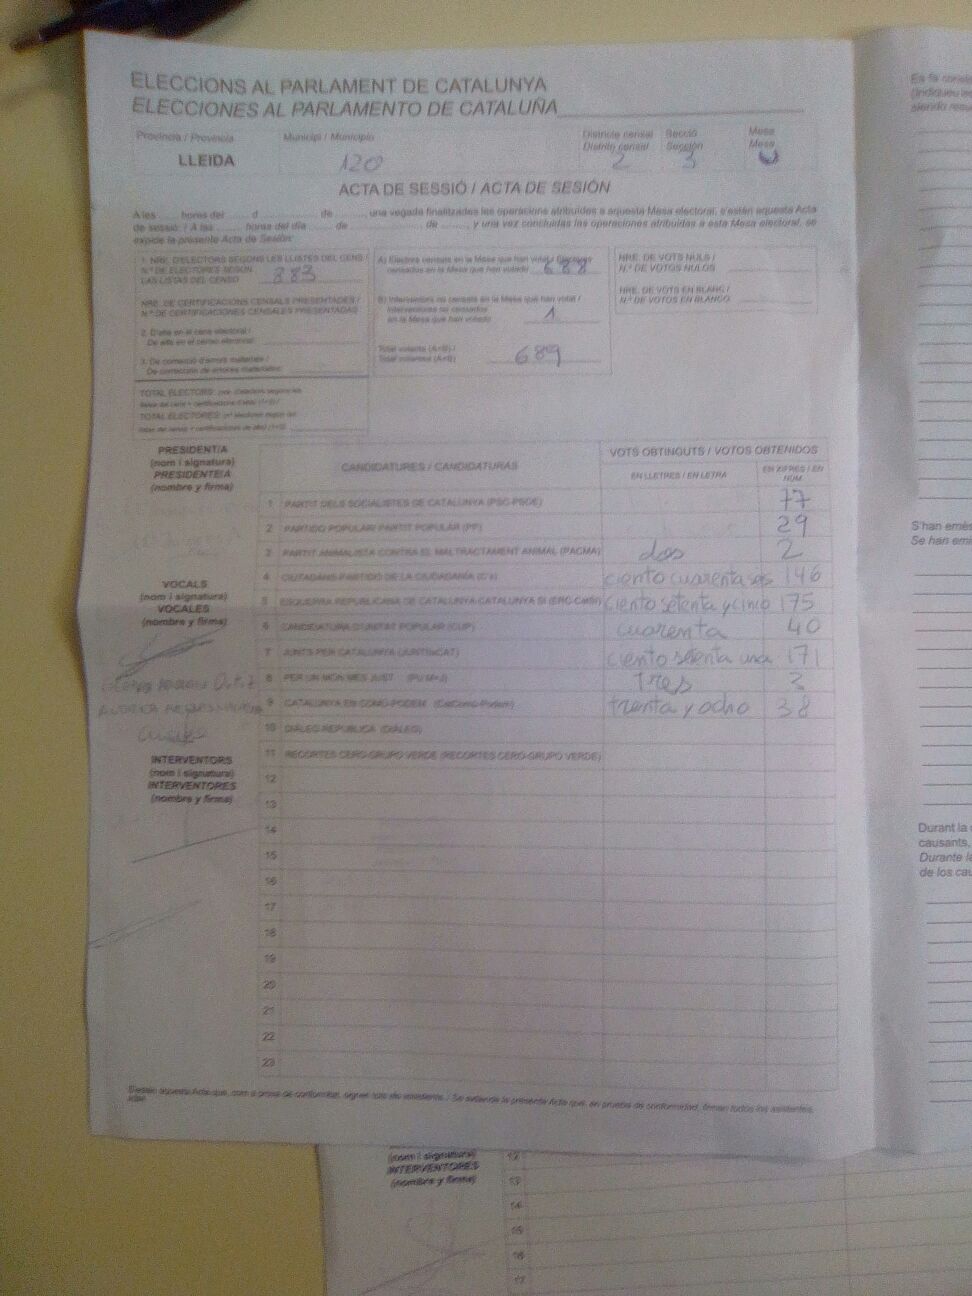 ELECCIONS AL PARLAMENT DE CATALUNYA
ELECCIONES AL PARLAMENTO DE CATALUÑA
Província / Provincia Municipi / Municipio Districte censal Secció Mesa
Distrito censal Sección Mesa
LLEIDA 120 2 3 U
ACTA DE SESSIÓ / ACTA DE SESIÓN
A les ...... hores del ...... d ...... de ......, una vegada finalitzades les operacions atribuïdes a aquesta Mesa electoral, s'estén aquesta Acta
de sessió. / A las ...... horas del día ...... de ...... de ......, y una vez concluidas las operaciones atribuidas a esta Mesa electoral, se
expide la presente Acta de Sesión:
1. NRE. D'ELECTORS SEGONS LES LLISTES DEL CENS /
N.º DE ELECTORES SEGÚN
LAS LISTAS DEL CENSO 883
NRE. DE CERTIFICACIONS CENSALS PRESENTADES /
N.º DE CERTIFICACIONES CENSALES PRESENTADAS
2. D'alta en el cens electoral /
De alta en el censo electoral
3. De correcció d'errors materials /
De corrección de errores materiales
TOTAL ELECTORS:
TOTAL ELECTORES:
A) Electors censats en la Mesa que han votat / Electores
censados en la Mesa que han votado 688
B) Interventors no censats en la Mesa que han votat /
Interventores no censados
en la Mesa que han votado 1
Total votants (A+B) /
Total votantes (A+B) 689
NRE. DE VOTS NULS /
N.º DE VOTOS NULOS
NRE. DE VOTS EN BLANC /
N.º DE VOTOS EN BLANCO
PRESIDENT/A
(nom i signatura)
PRESIDENTE/A
(nombre y firma)
VOCALS
(nom i signatura)
VOCALES
(nombre y firma)
INTERVENTORS
(nom i signatura)
INTERVENTORES
(nombre y firma)
CANDIDATURES / CANDIDATURAS VOTS OBTINGUTS / VOTOS OBTENIDOS
EN LLETRES / EN LETRA EN XIFRES / EN NÚM.
1 PARTIT DELS SOCIALISTES DE CATALUNYA (PSC-PSOE) 77
2 PARTIDO POPULAR/ PARTIT POPULAR (PP) 29
3 PARTIT ANIMALISTA CONTRA EL MALTRACTAMENT ANIMAL (PACMA) dos 2
4 CIUTADANS-PARTIDO DE LA CIUDADANÍA (C's) ciento cuarenta seis 146
5 ESQUERRA REPUBLICANA DE CATALUNYA-CATALUNYA SÍ (ERC-CatSí) ciento setenta y cinco 175
6 CANDIDATURA D'UNITAT POPULAR (CUP) cuarenta 40
7 JUNTS PER CATALUNYA (JUNTSxCAT) ciento setenta una 171
8 PER UN MÓN MÉS JUST (PUM+J) Tres 3
9 CATALUNYA EN COMÚ-PODEM (CatComú-Podem) trenta y ocho 38
10 DIÀLEG REPÚBLICA (DIÀLEG)
11 RECORTES CERO-GRUPO VERDE (RECORTES CERO-GRUPO VERDE)
12
13
14
15
16
17
18
19
20
21
22
23
S'estén aquesta Acta que, com a prova de conformitat, signen tots els assistents. / Se extiende la presente Acta que, en prueba de conformidad, firman todos los asistentes.
(Indiqueu
S'han emès
Se han emi
Durant la
causants,
Durante la
de los cau
(nom i signatura)
INTERVENTORES
(nombre y firma)
12
13
14
15
16
17